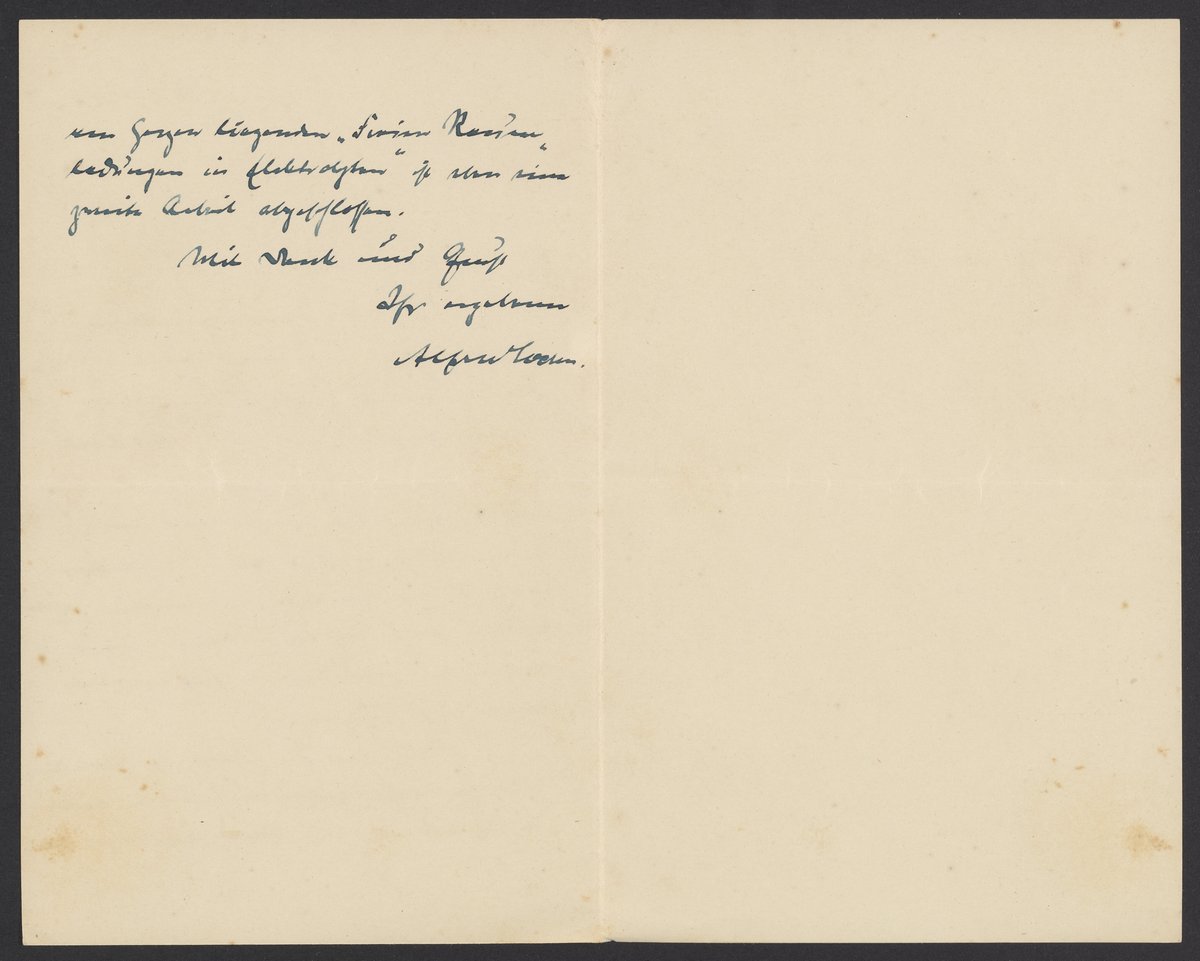 am Herzen liegenden „Freien Raum-
ladungen in Elektrolyten" ist eben eine
zweite Arbeit abgeschlossen.
Mit Dank und Gruß
Ihr ergebener
Alfred Coehn.